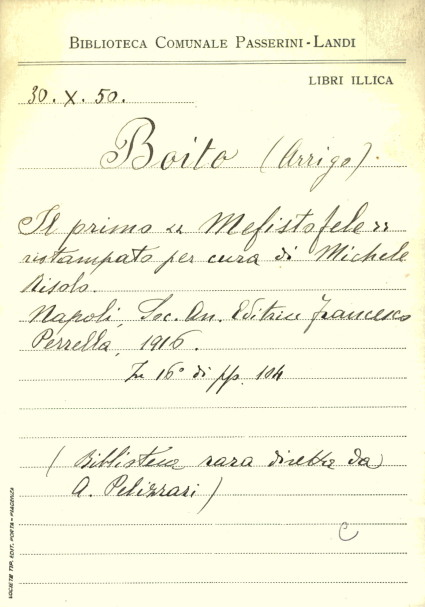 BIBLIOTECA COMUNALE PASSERINI-LANDI
LIBRI ILLICA
30. X. 50.
Boito (Arrigo).
Il primo « Mefistofele »
ristampato per cura di Michele
Risolo.
Napoli, Soc. An. Editrice Francesco
Perrella, 1916.
In 16° di pp. 104
( Biblioteca rara diretta da
A. Pelizzari )
C
SOCIETÀ TIP. EDIT. PORTA - PIACENZA